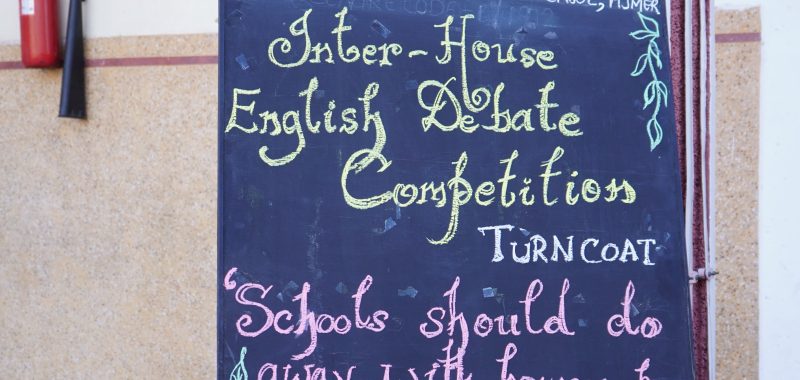 Inter-House
English Debate
Competition
TURNCOAT
'Schools should do
away with